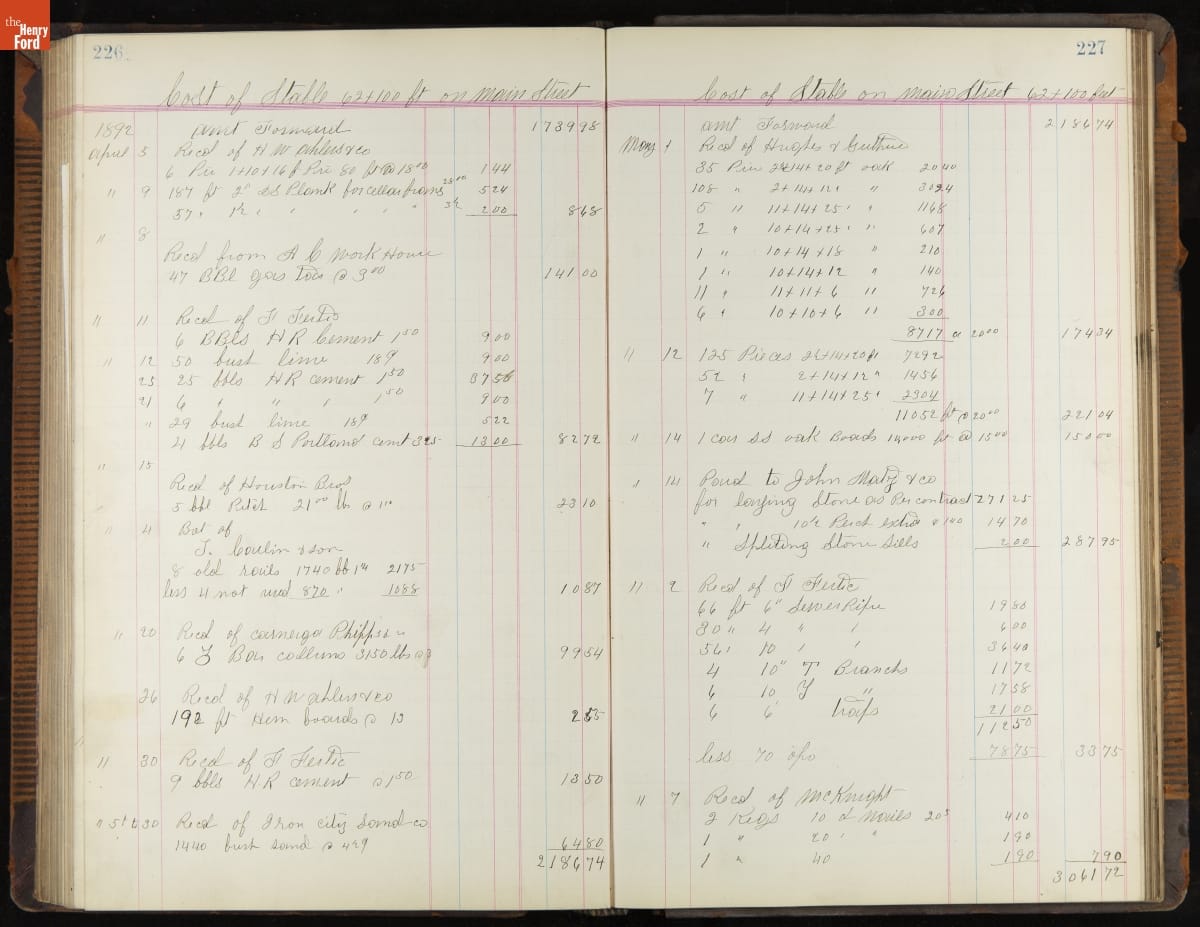 the
Henry
Ford
226
Cost of Stable 62+100 ft on Main Street
1892 Amt Forward 173998
April 5 Recd of H W Ahlers & co
144
" 9 187 ft 2" SS Plank for cellar 28.00 524
57 " 1½ " " " " " 200 868
" 8
Recd from A C Work House
47 BBl gas tar @ 3 00 14100
" 11 Recd of F
6 BBls H R Cement 1 50 9.00
" 12 50 bush lime 18¢ 9.00
25 25 bbls H R cement 1 50 3750
21 6 " " " 1 50 9.00
" 29 bush lime 18¢ 522
4 bbls B S Portland cemt 325 1300 8272
" 15
Recd of Houston Bros
5 bbl Pitch 2310
" 4 Bot of
& son
8 old rails 1740 2175
less 4 not used 870 " 1088 1087
" 20 Recd of Phipps
6 Z Bar 3150 lbs @ 9954
26 Recd of H W Ahlers & co
192 ft Hem boards @ 13 255
" 30 Recd of F
9 bbls H R cement @ 1 50 1350
Recd of Iron City Sand co
1440 bush sand @ 6480
218674
227
Cost of Stable on Main Street 62+100 feet
Amt Forward 218674
May Recd of Hughes & Guthrie
35 2½+14+20 ft oak 2040
108 " 2+14+12 " " 3024
5 " 11+14+25 " " 1168
2 " 10+14+25 " " 607
1 " 10+14+18 " 210
1 " 10+14+12 " 140
11 " 11+11+6 " 726
6 " 10+10+6 " 300
8717 @ 2000 17434
" 12 125 Pieces 2½+14+20 ft 7292
52 " 2+14+12 " 1456
7 " 11+14+25 " 2304
11052 ft @ 2000 22104
" 14 1 car SS oak Boads ft @ 15 00 15000
" 14 Paid to John Matz & co
for laying Stone as Per contract 27125
" " 10½ Perch extra @ 140 1470
" Spliting Stone Sills 200 28795
" 2 Recd of F
66 ft 6" Sewer Pipe 1980
30 " 4 " " 600
56 " 10 " " 3640
4 10" T Branchs 1172
6 10 Y " 1758
6 6 traps 2100
11250
less 70 7875 3375
" 7 Recd of McKnight
2 Kegs 10 d Nailes 205 410
1 " 20 " " 190
1 " 40 190 790
306172